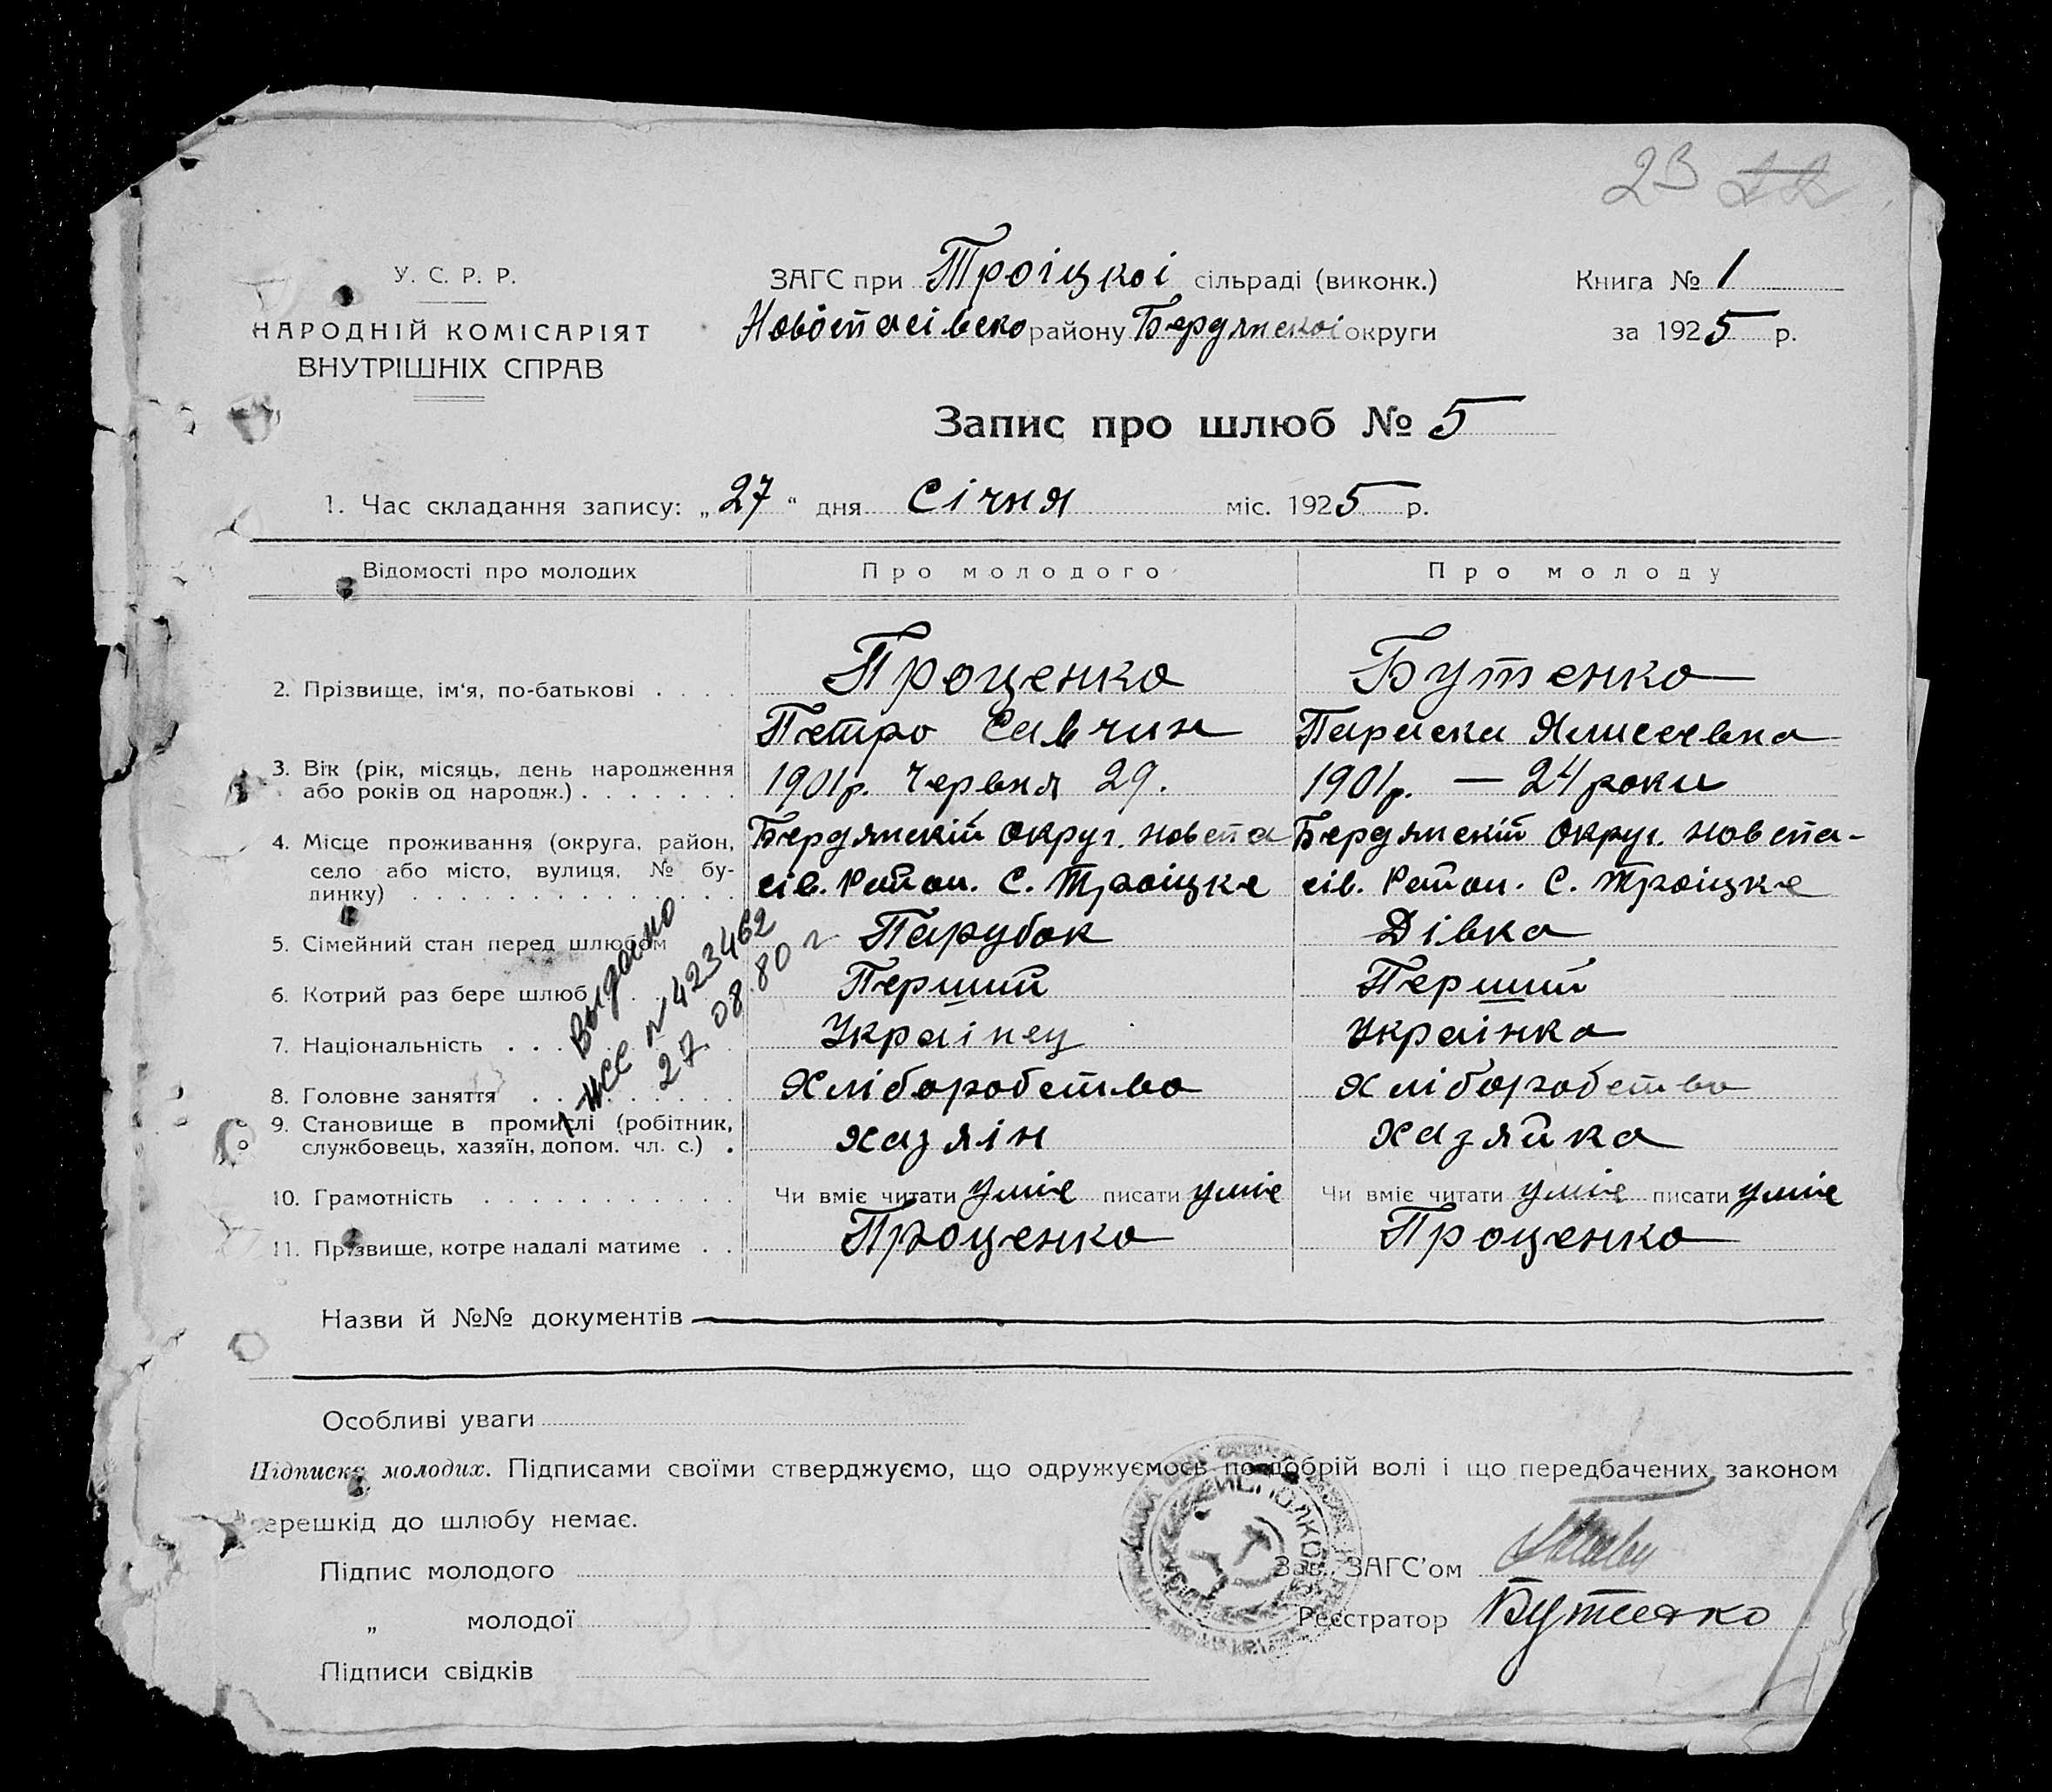 23
У. С. Р. Р.
НАРОДНІЙ КОМІСАРІЯТ
ВНУТРІШНІХ СПРАВ
ЗАГС при Троіцкоі сільраді (виконк.)
Новостасівско району Бердянскоі округи
Книга № 1
за 1925 р.
Запис про шлюб № 5
1. Час складання запису: „27“ дня Січня міс. 1925 р.
Відомості про молодих Про молодого Про молоду
2. Прізвище, ім‘я, по-батькові . . . . Проценко Бутенко
Петро Савчин Параска
3. Вік (рік, місяць, день народження 1901р. Червня 29. 1901р. — 24 роки
або років од народж.) . . . . . . .
4. Місце проживання (округа, район, Бердянскій Округ. Новста Бердянскій Округ. Новста-
село або місто, вулиця, № бу- сів. Район. С. Троіцке сів. Район. С. Троіцке
динку) . . . . . . . . . . . . . .
5. Сімейний стан перед шлюбом Парубок Дівка
6. Котрий раз бере шлюб Перший Перший
7. Національність . . . Украінец Украінка
8. Головне заняття . . . . . . . . Хліборобство Хліборобство
9. Становище в промислі (робітник, Хазяін Хазяйка
службовець, хазяїн, допом. чл. с.) .
10. Грамотність . . . . . . . . . . . Чи вміє читати уміє писати уміє Чи вміє читати уміє писати уміє
11. Прізвище, котре надалі матиме . . Проценко Проценко
Выдано
№ 423462
27.08.80 г
Назви й №№ документів
Особливі уваги
Підписка молодих. Підписами своїми стверджуємо, що одружуємось по добрій волі і що передбачених законом
перешкід до шлюбу немає.
Підпис молодого
Зав. ЗАГС’ом
„ молодої
Реєстратор Бутенко
Підписи свідків